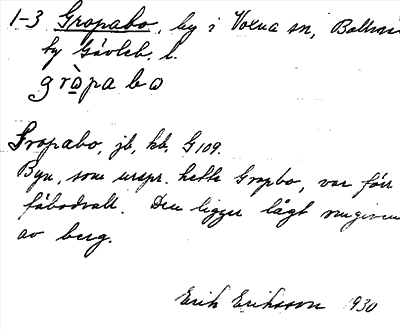 1-3 Gropabo, by i Voxna sn, Bollnäs
by Gävleb. l.
gròpabo
Gropabo, jb, kb. G 109.
Byn, som urspr. hette Gropbo, var förr
fäbodvall. Den ligger lågt omgiven
av berg.
Erik Eriksson 1930